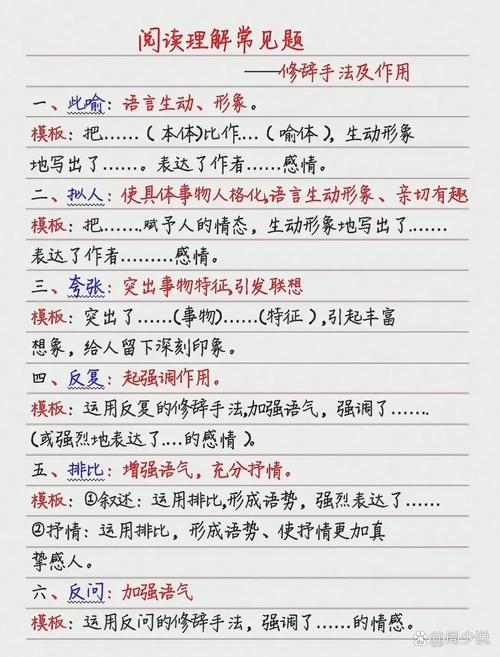 阅读理解常见题
——修辞手法及作用
一、比喻：语言生动、形象。
模板：把……（本体）比作…（喻体），生动形象
地写出了……。表达了作者……感情。
二、拟人：使具体事物人格化,语言生动形象、亲切有趣
模板：把……..赋予人的情态，生动形象地写出了…….
表达了作者………感情。
三、夸张：突出事物特征,引发联想
模板：突出了……(事物)……(特征），引起丰富
想象，给人留下深刻印象。
四、反复：起强调作用。
模板：运用反复的修辞手法,加强语气，强调了…….
(或强烈地表达了….的感情）。
五、排比：增强语气，充分抒情。
模板：①叙述：运用排比,形成语势，强烈表达了……
②抒情：运用排比，形成语势、使抒情更加真
挚感人。
六、反问：加强语气
模板：运用反问的修辞手法，强调了……的情感。
@周少说